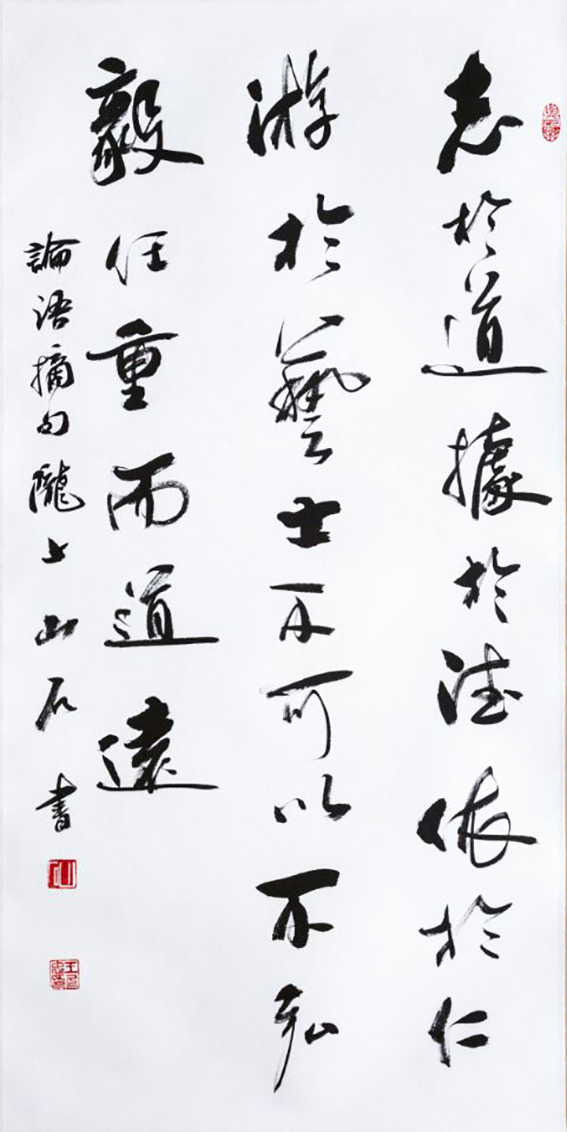 志於道據於德依於仁
游於藝士不可以不弘
毅任重而道遠
論語摘句隴上山石書